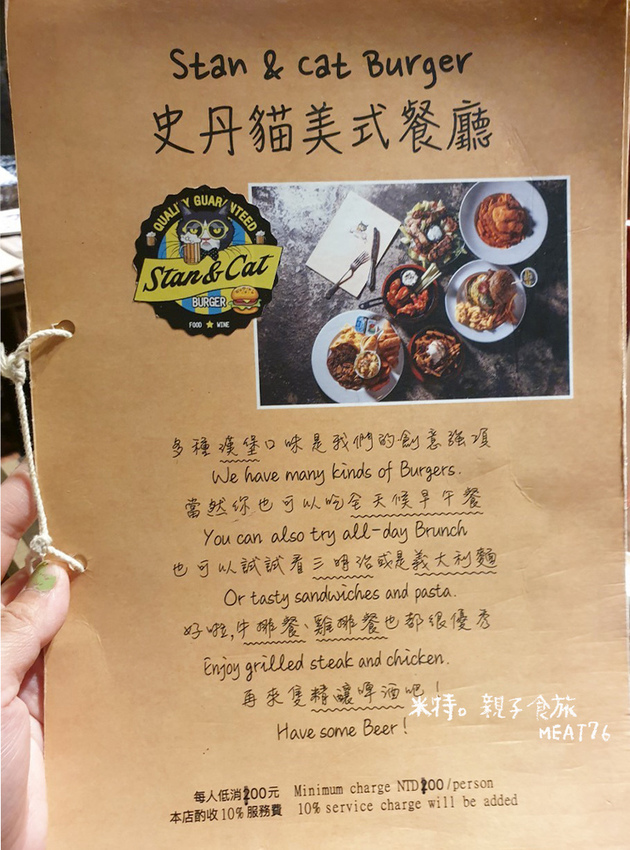 Stan & Cat Burger
史丹貓美式餐廳
QUALITY GUARANTEED
Stan & Cat
BURGER
FOOD ★ WINE
多種漢堡口味是我們的創意強項
We have many kinds of Burgers.
當然你也可以吃全天候早午餐
You can also try all-day Brunch
也可以試試看三明治或是義大利麵
Or tasty sandwiches and pasta.
好啦,牛排餐、雞排餐也都很優秀
Enjoy grilled steak and chicken.
再來隻精釀啤酒吧!
Have some Beer!
米特。親子食旅
MEAT76
每人低消200元 Minimum charge NTD200/person
本店酌收10%服務費 10% service charge will be added